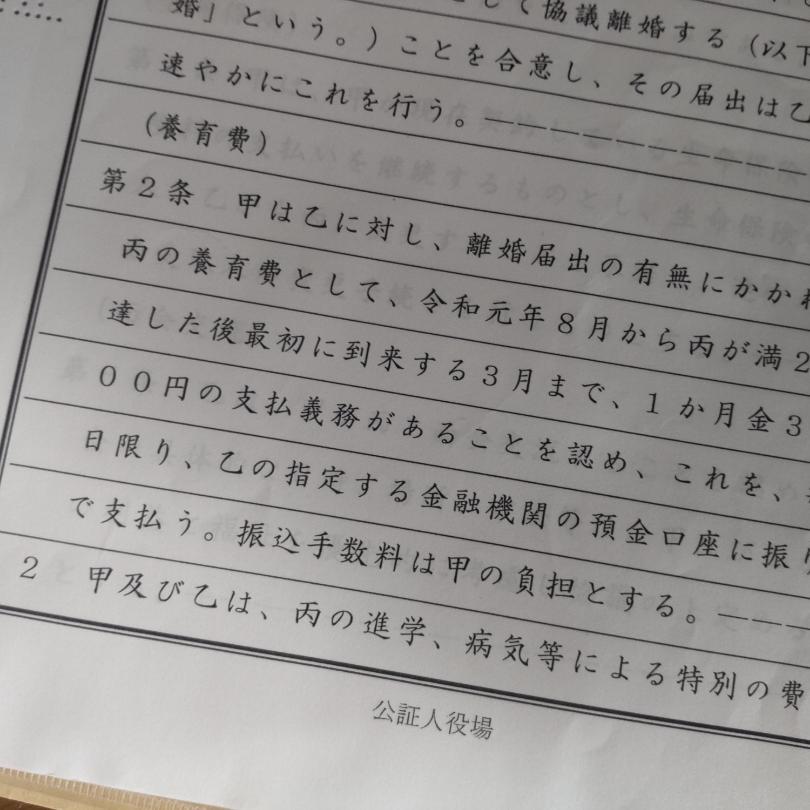 して協議離婚する（以下
婚」という。）ことを合意し、その届出は乙
速やかにこれを行う。
（養育費）
第２条　甲は乙に対し、離婚届出の有無にかかわ
丙の養育費として、令和元年８月から丙が満２
達した後最初に到来する３月まで、１か月金３
００円の支払義務があることを認め、これを、
日限り、乙の指定する金融機関の預金口座に振り
で支払う。振込手数料は甲の負担とする。
２　甲及び乙は、丙の進学、病気等による特別の費
公証人役場